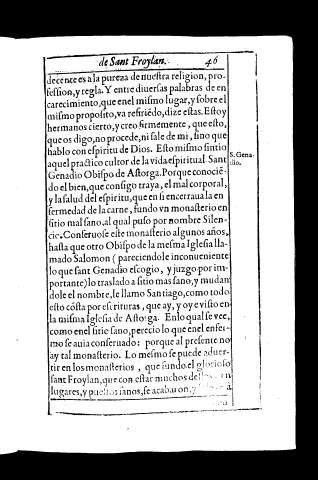 de Sant Froylan. 46
decente es a la pureza de nuestra religion, pro-
fession, y regla. Y entre diuersas palabras de en
carecimiento, que en el mismo lugar, y sobre el
mismo proposito, va refiriẽdo, dize estas. Estoy
hermanos cierto, y creo firmemente, que esto,
que os digo, no procede, ni sale de mi, sino que
hablo con espiritu de Dios. Esto mismo sintio
aquel practico cultor de la vida espiritual. Sant
S. Gena-
dio.
Genadio Obispo de Astorga. Porque conociẽ-
do el bien, que consigo traya, el mal corporal,
y la salud del espiritu, que en si encerraua la en
fermedad de la carne, fundo vn monasterio en
sitio mal sano, al qual puso por nombre Silen-
cio. Conseruose este monasterio algunos años,
hasta que otro Obispo de la mesma Iglesia lla-
mado Salomon (pareciendole inconueniente
lo que sant Genadio escogio, y juzgo por im-
portante) lo traslado a sitio mas sano, y mudan
dole el nombre, le llamo Santiago, como todo
esto cõsta por escrituras, que ay, y oy e visto en
la misma Iglesia de Astorga. En lo qual se vee,
como en el sitio sano, perecio lo que en el enfer-
mo se auia conseruado: porque al presente no
ay tal monasterio. Lo mesmo se puede aduer-
tir en los monasterios, que fundo el glorioso
sant Froylan, que con estar muchos dellos en
lugares, y puestos sanos, se acabaron, y